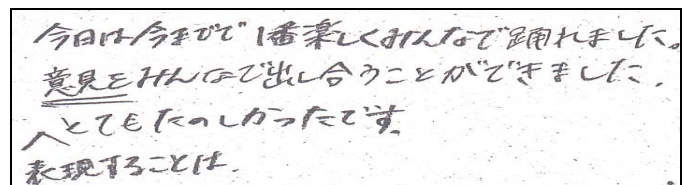 今日は今までで1番楽しくみんなで踊れました。
意見をみんなで出し合うことができました.
とてもたのしかったです.
表現することは.